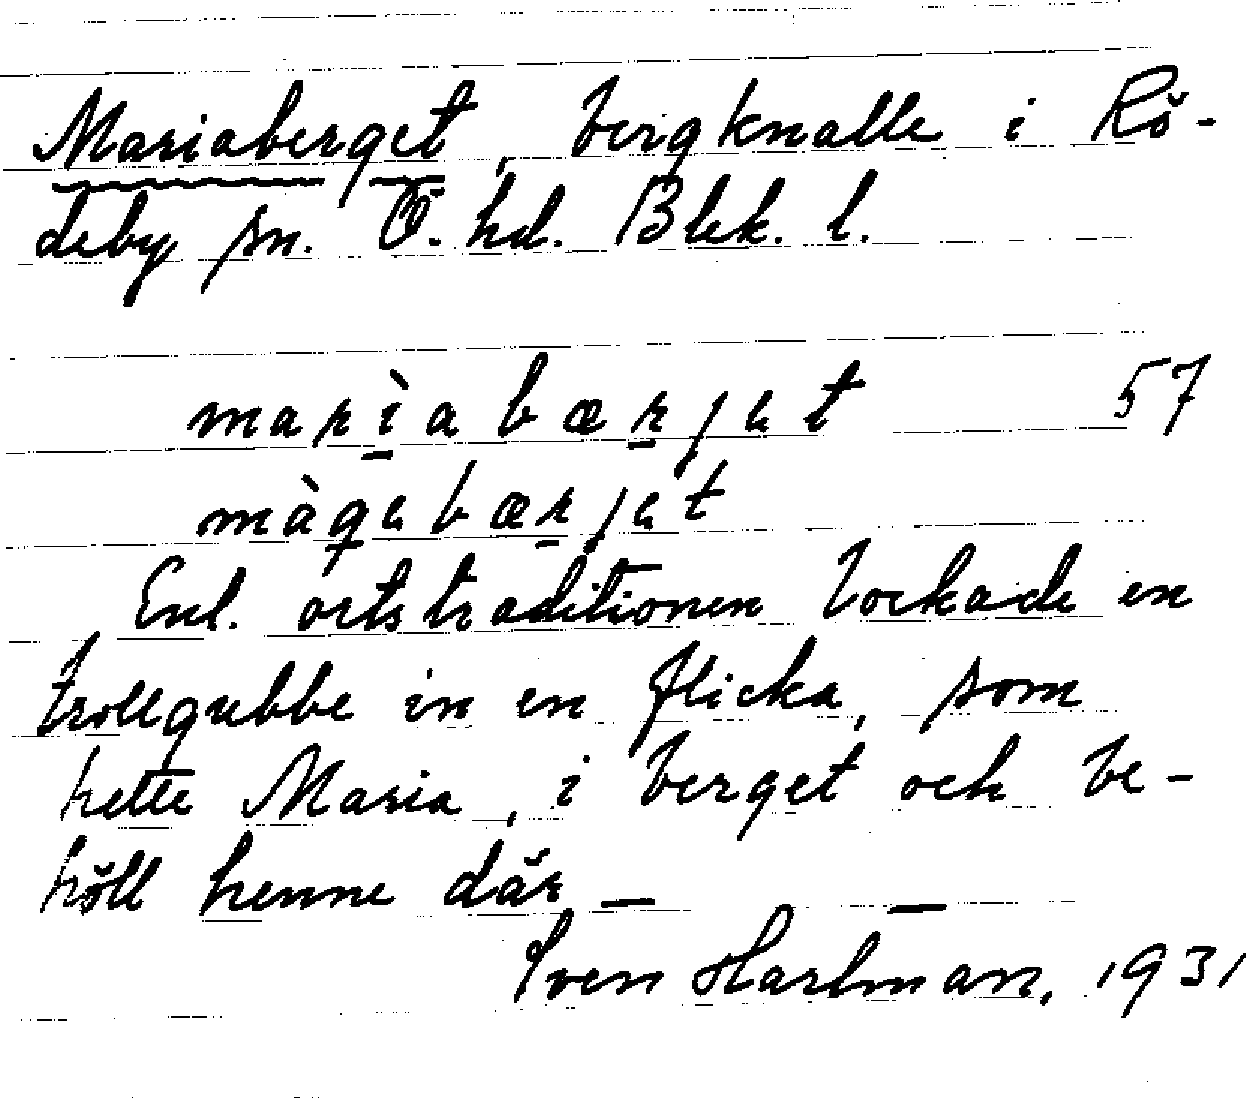 Mariaberget, bergknalle i Rö-
deby sn. Ö. hd. Blek. l.
marìabærjet 57
màqebærjet
Enl. ortstraditionen lockade en
trollgubbe in en flicka, som
hette Maria, i berget och be-
höll henne där — —
Sven Hartman, 1931